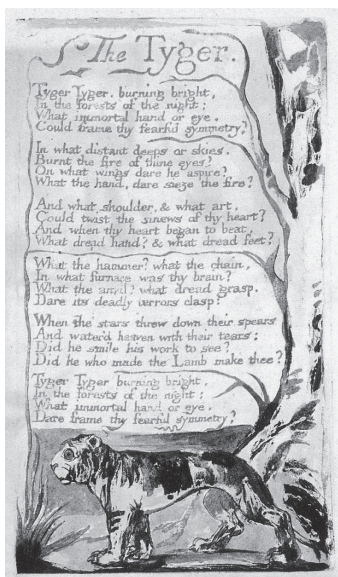 The Tyger.
Tyger Tyger. burning bright,
In the forests of the night;
What immortal hand or eye.
Could frame thy fearful symmetry?
In what distant deeps or skies.
Burnt the fire of thine eyes?
On what wings dare he aspire?
What the hand, dare sieze the fire?
And what shoulder, & what art,
Could twist the sinews of thy heart?
And when thy heart began to beat,
What dread hand? & what dread feet?
What the hammer? what the chain,
In what furnace was thy brain?
What the anvil? what dread grasp.
Dare its deadly terrors clasp!
When the stars threw down their spears
And water'd heaven with their tears:
Did he smile his work to see?
Did he who made the Lamb make thee?
Tyger Tyger burning bright,
In the forests of the night:
What immortal hand or eye.
Dare frame thy fearful symmetry?